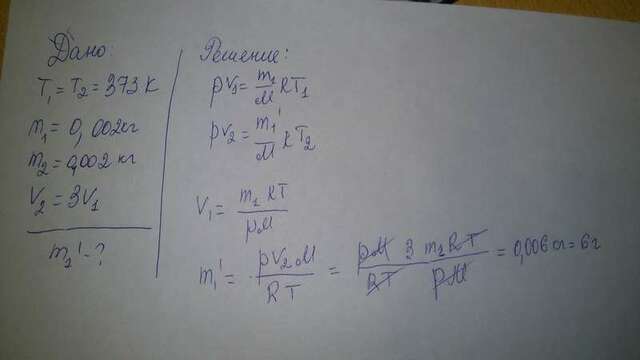 Дано:
T₁ = T₂ = 373 K
m₁ = 0,002 кг
m₂ = 0,002 кг
V₂ = 3V₁
m₁' - ?
Решение:
pV₁ = m₁/M RT₁
pV₂ = m₁'/M RT₂
V₁ = m₁ RT / pM
m₁' = pV₂M / RT = pM 3 m₁RT / RT pM = 0,006 кг = 6г